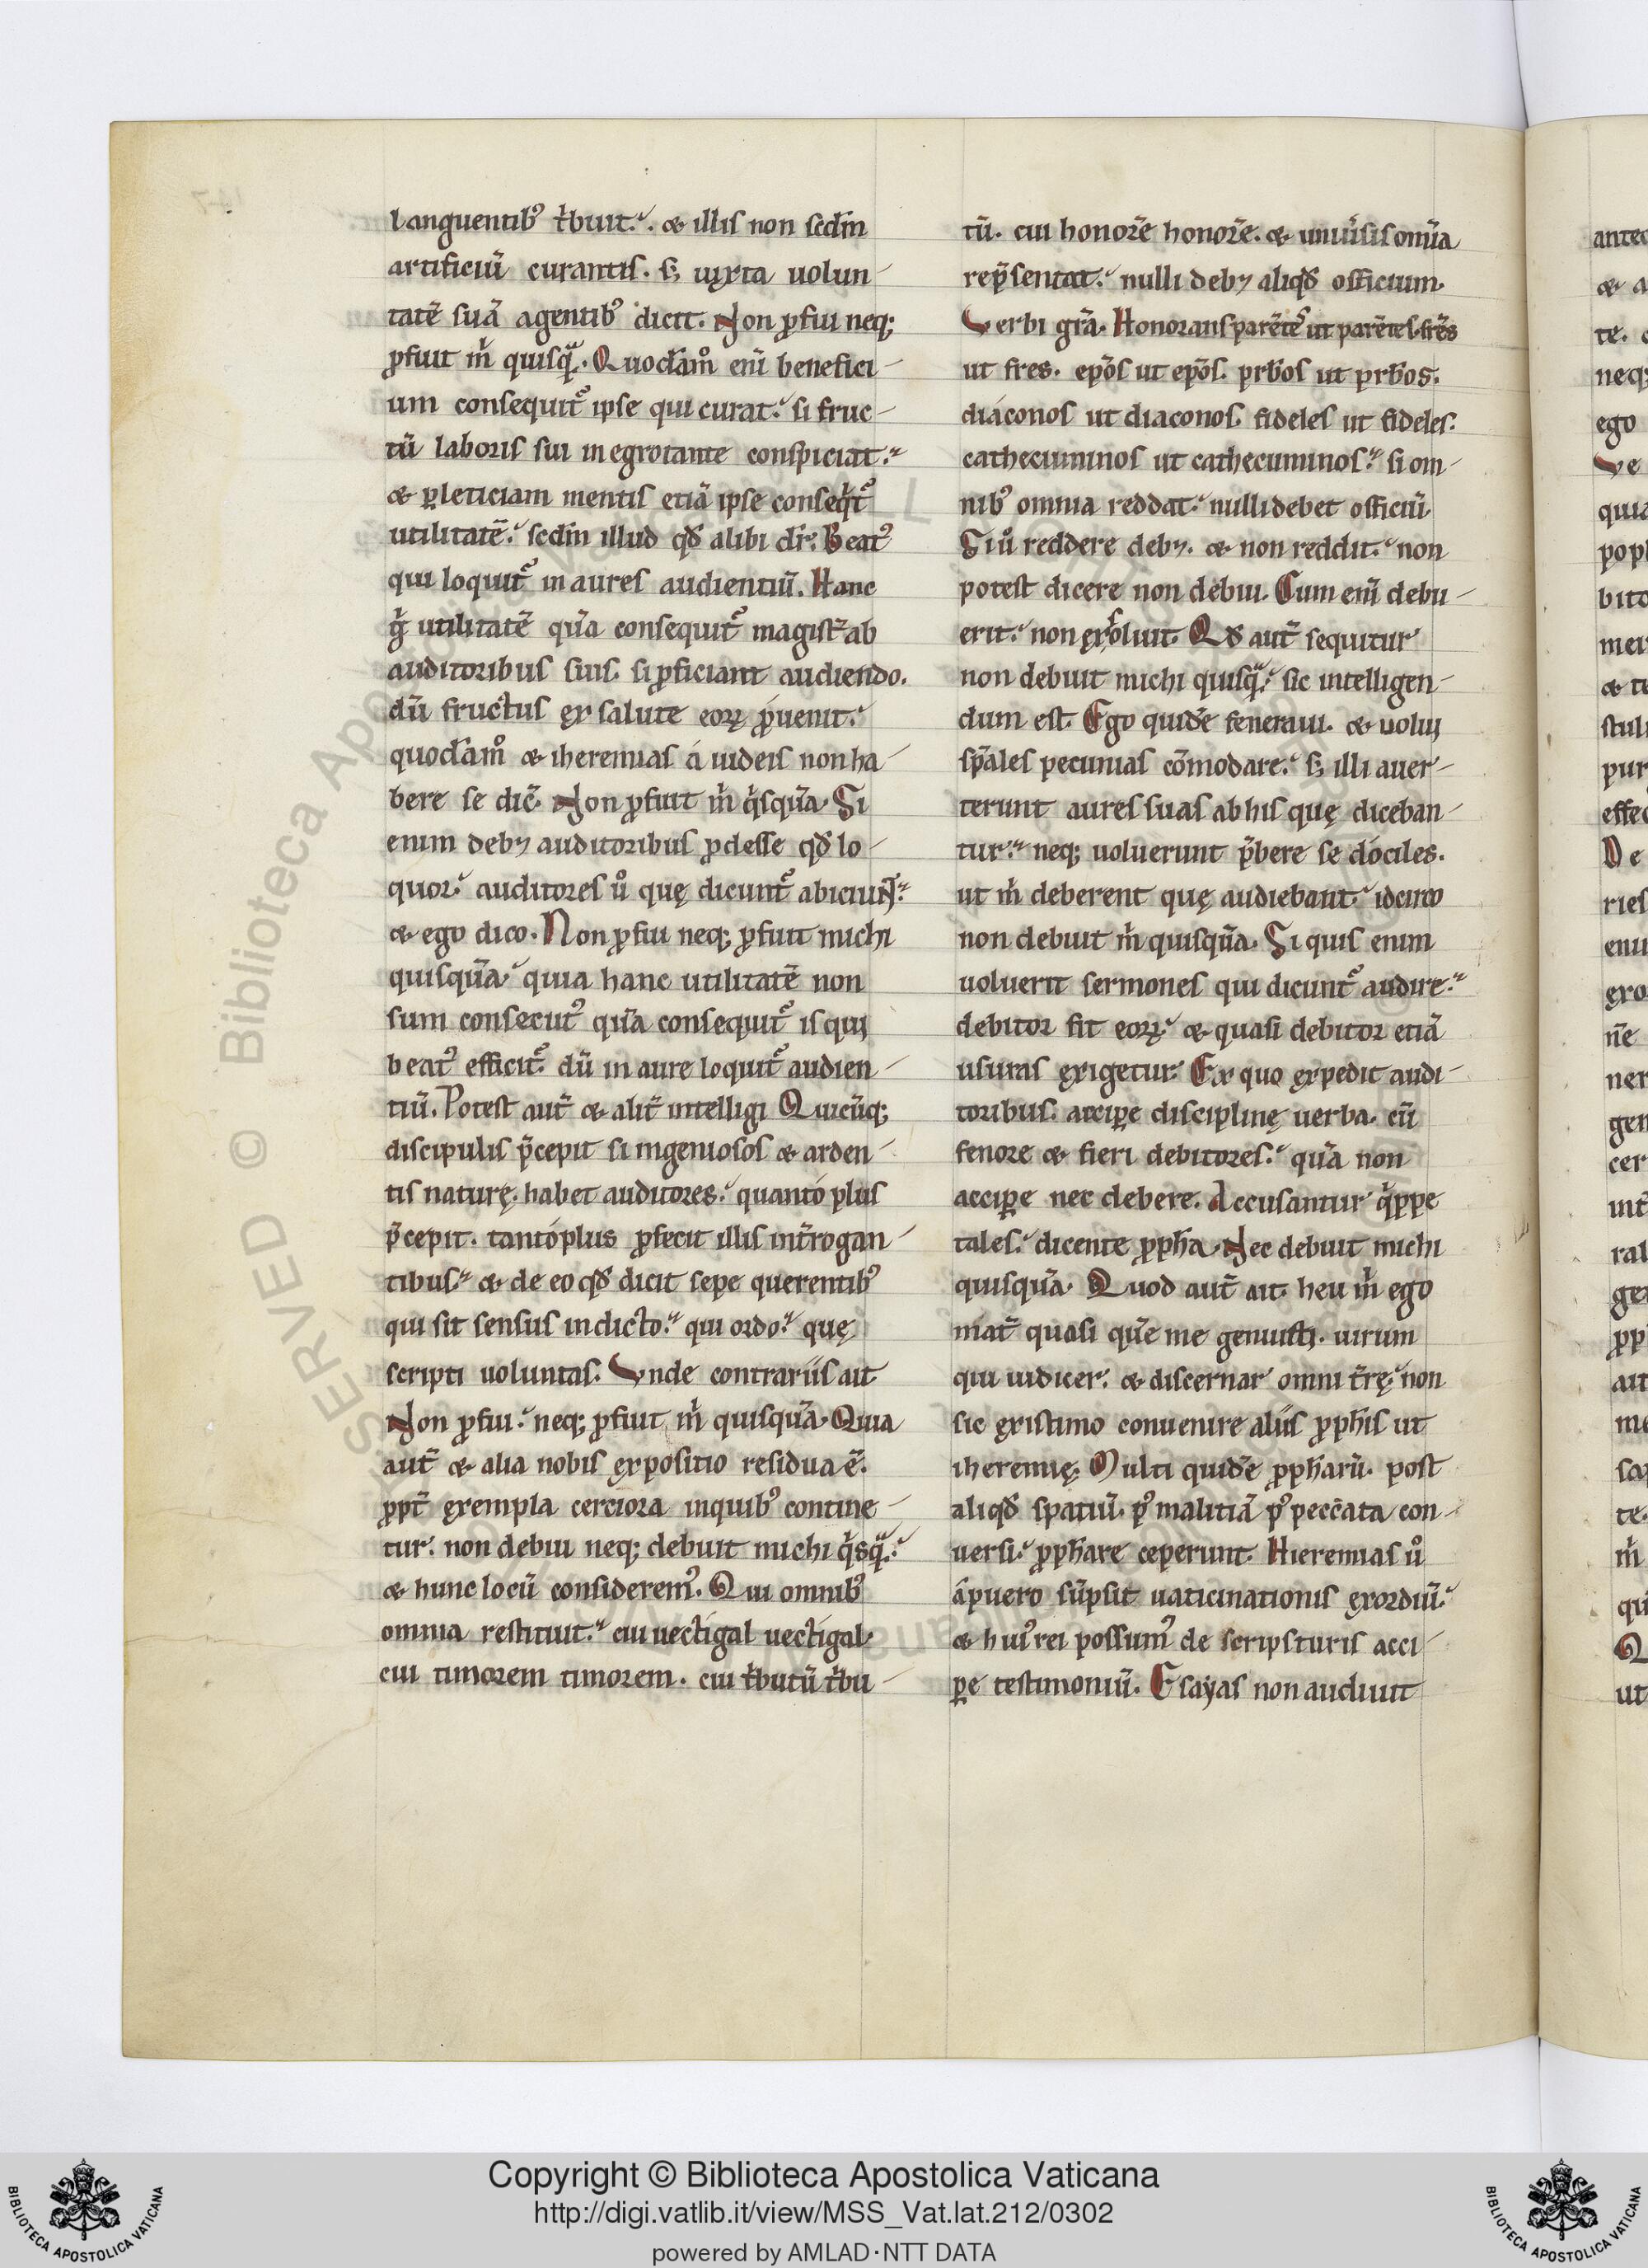 languentibꝰ t͛buit. ⁊ illis non scdm̄
artificiū curantis. s; iuxta uolun-
tatē suā agentibꝰ dicit. Non ꝓfui neq;
ꝓfuit m̍ quisqᷓ. Quodāmͦ eni̅ benefici-
um consequit᷑ ipse qui curat. si fruc-
tū laboris sui in egrotante conspiciat.
⁊ ꝑ leticiam mentis etiā ipse conseqͥt᷑
utilitatē. scdm̄ illud qđ alibi dr̄. Beatꝰ
qui loquit᷑ in aures audientiū. Hanc
gͥ utilitatē qua̅ consequit᷑ magist̄ ab
auditoribus suis. si ꝓficiant audiendo.
dū fructus ex salute eoꝝ ꝓuenit.
quodāmͦ ⁊ iheremias á iudeis non ha-
bere se dic̄. Non ꝓfuit m̍ qͥsqua̅. Si
enim debꝫ auditoribus ꝓdesse qđ lo-
quor. auditores uͦ quę dicunt᷑ abiciunt.
⁊ ego dico. Non ꝓfui neq; ꝓfuit michi
quisqua̅. quia hanc utilitatē non
sum consecutꝰ qua̅ consequit᷑ is qui
beatꝰ efficit᷑. dū in aure loquit᷑ audien-
tiū. Potest aut̄ ⁊ alit̄ intelligi Quicūq;
discipulis p̄cepit si ingeniosos ⁊ arden-
tis naturę. habet auditores. quantó plus
p̄cepit. tantó plus ꝓfecit illis int̄rogan-
tibus. ⁊ de eo qđ dicit sepe querentibꝰ
qui sit sensus in dicto. qui ordo. quę
scripti uoluntas. Unde contrariis ait
Non ꝓfui. neq; ꝓfuit m̍ quisqua̅. Quia
aut̄ ⁊ alia nobis expositio residua ē.
ꝓpt̄ exempla cerciora in quibꝰ contine-
tur. non debui neq; debuit michi qͥsqᷓ.
⁊ hunc locū consideremꝰ. Qui omnibꝰ
omnia restituit. cui uectigal uectigal.
cui timorem timorem. cui t͛butū t͛bu-
tū. cui honorē honorē. ⁊ uniu͛sis omīa
rep̄sentat. nulli debꝫ aliqđ officium.
Verbi grā. Honorans parētes ut parētes. fr̄es
ut fres. ep̄os ut ep̄os. prb̄os ut prb̄os.
diáconos ut diaconos. fideles ut fideles.
cathecuminos ut cathecuminos. si om-
nibꝰ omnia reddat. nulli debet officiū.
Si uͦ reddere debꝫ. ⁊ non reddit. non
potest dicere non debui. Cum eni̅ debu-
erit. non exsoluit. Qđ aut̄ sequitur
non debuit michi quisqᷓ. sic intelligen-
dum est. Ego quidē feneraui. ⁊ uolui
sp̄ales pecunias cōmodare. s; illi auer-
terunt aures suas ab his quę diceban-
tur. neq; uoluerunt p̄bere se dóciles.
ut m̍ deberent quę audiebant. idcirco
non debuit m̍ quisqua̅. Si quis enim
uoluerit sermones qui dicunt᷑ audire.
debitor fit eoꝝ. ⁊ quasi debitor etiā
usuras exigetur. Ex quo expedit audi-
toribus. accipe disciplinę uerba. cū
fenore ⁊ fieri debitores. qua̅ non
acciꝑe nec debere. Accusantur qͥppe
tales. dicente ꝓph̄a. Nec debuit michi
quisqua̅. Quod aut̄ ait. heu m̍ ego
mat̄ quasi que̅ me genuisti. uirum
qui iudicer. ⁊ discernar omni t̄rę. non
sic existimo conuenire aliis ꝓph̄is ut
iheremię. Multi quidē ꝓph̄arū. post
aliqđ spatiū. pꝰ malitiā pꝰ peccata con-
uersi. ꝓph̄are ceperunt. Hieremias uͦ
á puero sūpsit uaticinationis exordiū.
⁊ huiꝰ rei possumꝰ de scripsturis acci-
ꝑe testimoniū. Esayas non audiuit
Copyright © Biblioteca Apostolica Vaticana
http://digi.vatlib.it/view/MSS_Vat.lat.212/0302
powered by AMLAD·NTT DATA